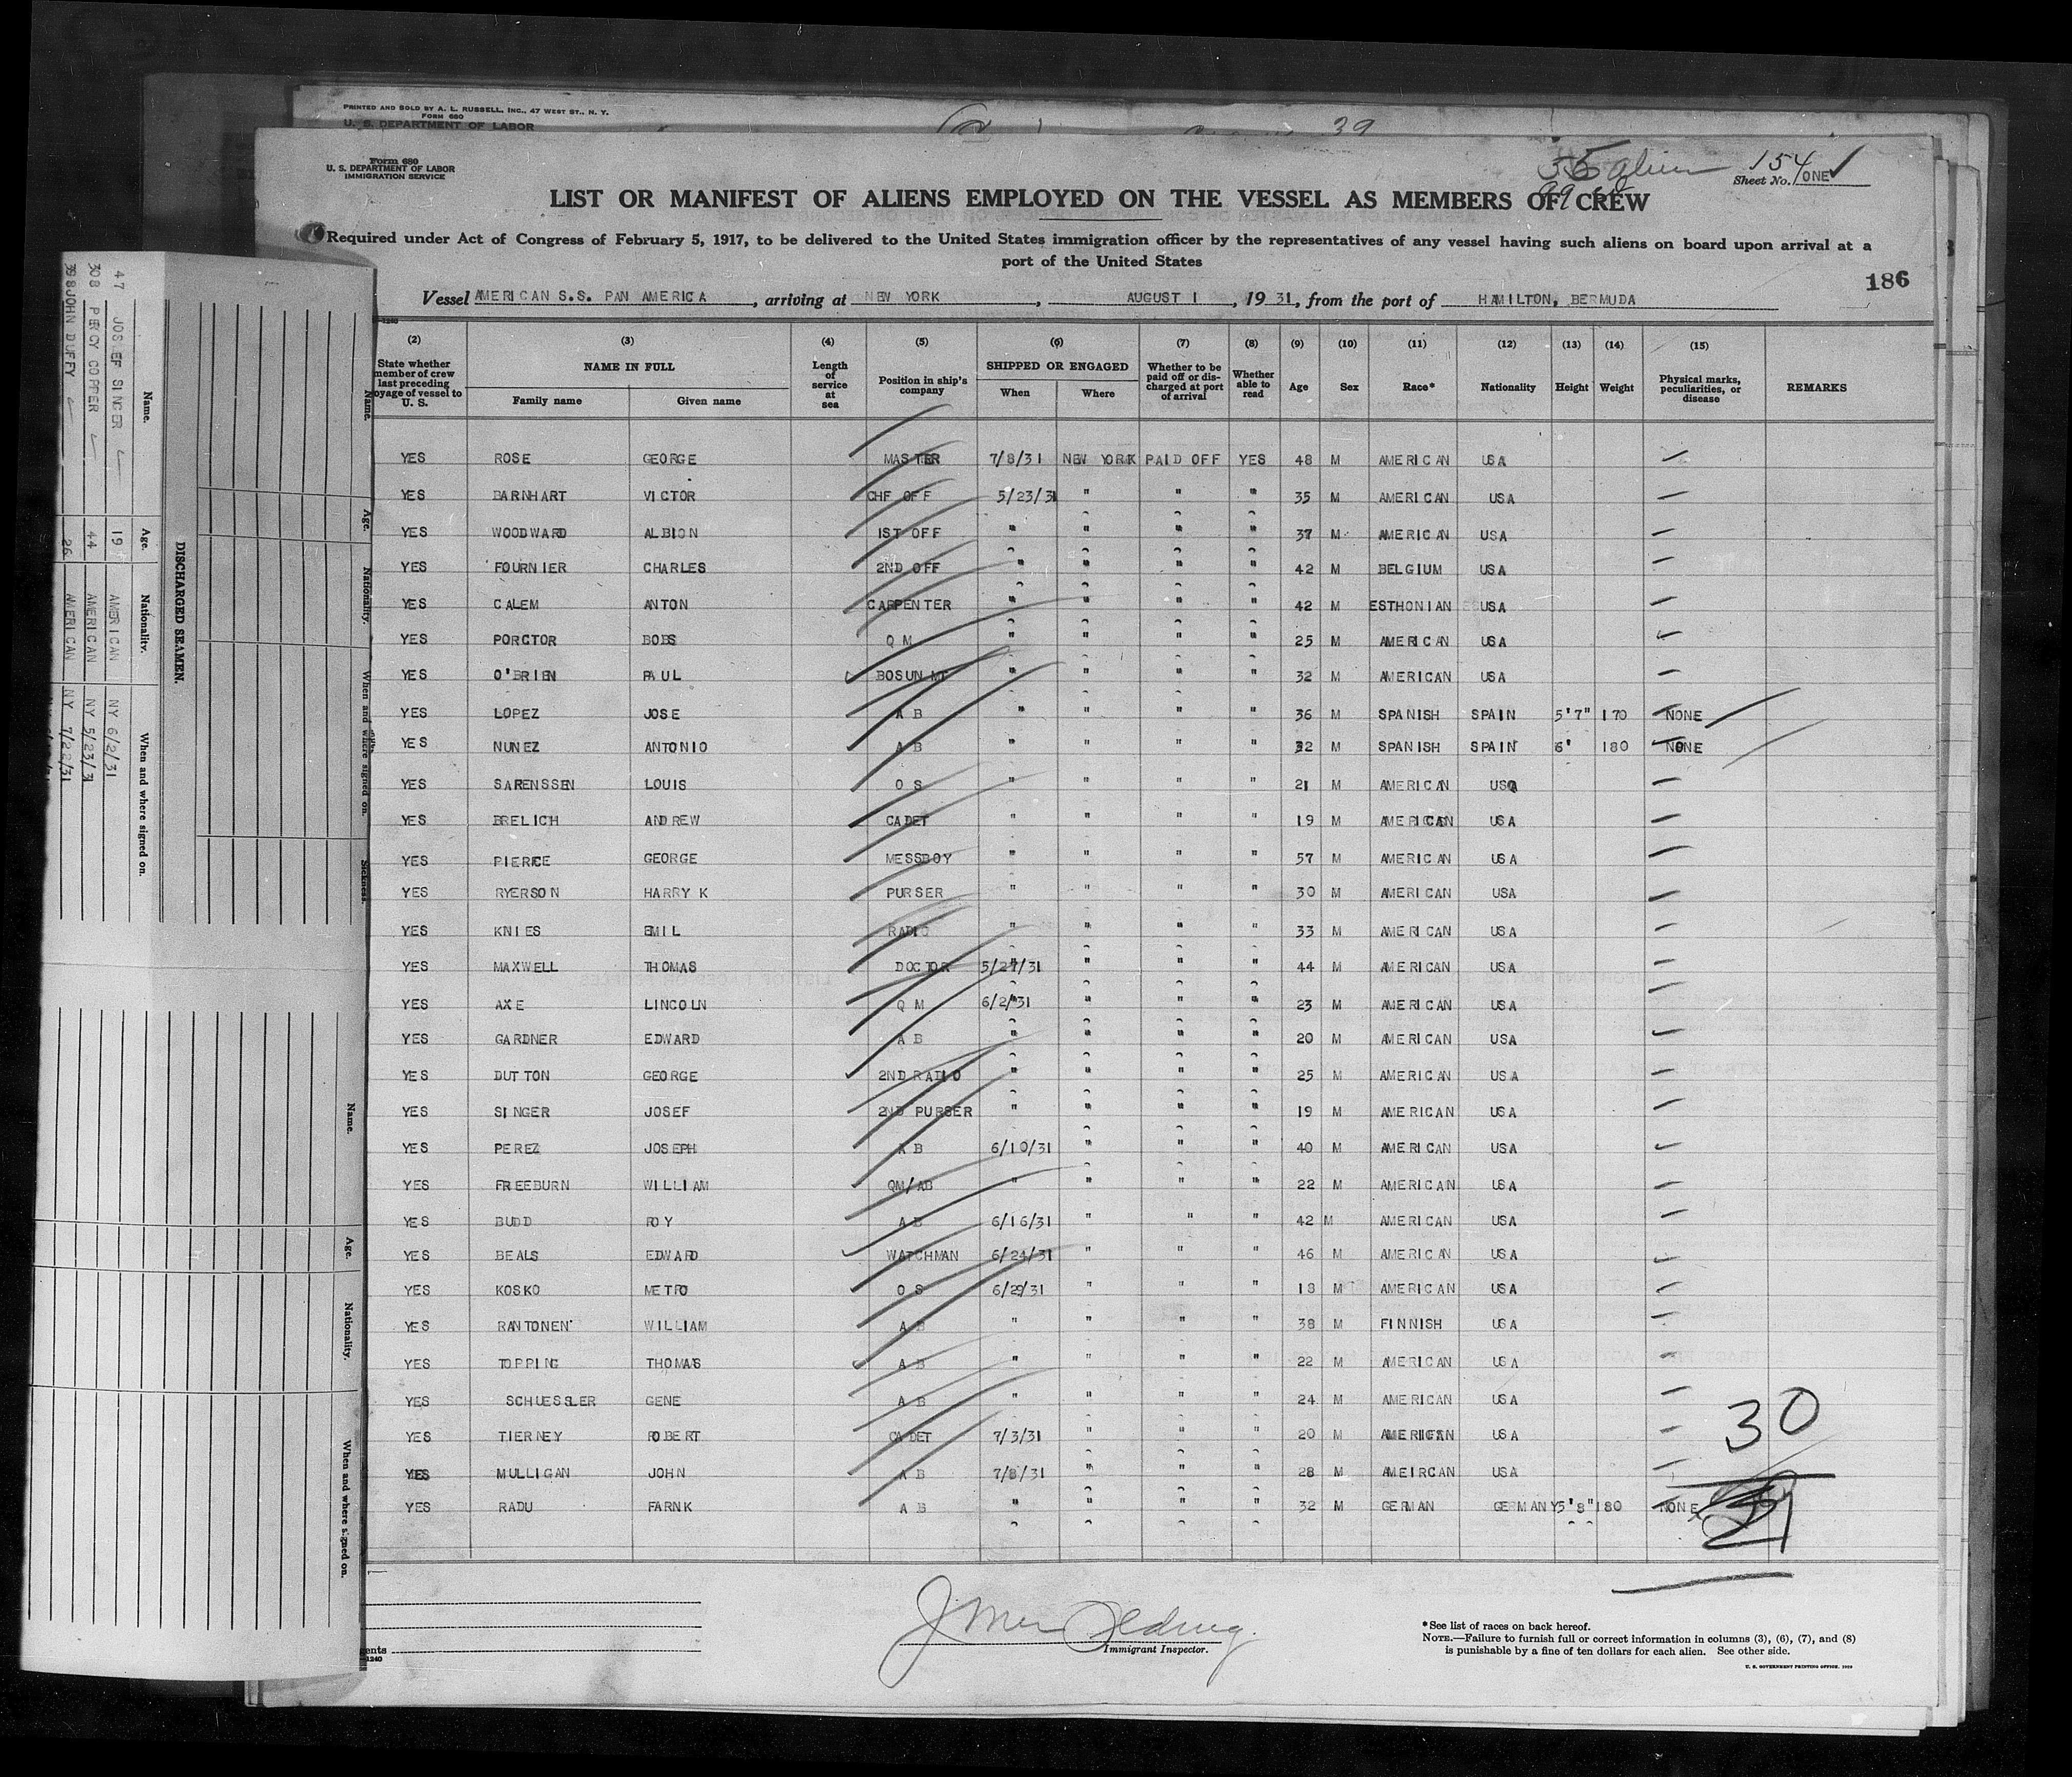 PRINTED AND SOLD BY A. L. RUSSELL, INC., 47 WEST ST., N. Y.
FORM 680
U. S. DEPARTMENT OF LABOR
39
Form 680
U. S. DEPARTMENT OF LABOR
IMMIGRATION SERVICE
35 alien 154
Sheet No. ONE
LIST OR MANIFEST OF ALIENS EMPLOYED ON THE VESSEL AS MEMBERS OF CREW
Required under Act of Congress of February 5, 1917, to be delivered to the United States immigration officer by the representatives of any vessel having such aliens on board upon arrival at a
port of the United States
186
Vessel AMERICAN S.S. PAN AMERICA, arriving at NEW YORK, AUGUST 1, 19 31, from the port of HAMILTON, BERMUDA
(2) (3) (4) (5) (6) (7) (8) (9) (10) (11) (12) (13) (14) (15)
State whether member of crew last preceding voyage of vessel to U. S. NAME IN FULL Family name Given name Length of service at sea Position in ship's company SHIPPED OR ENGAGED When Where Whether to be paid off or discharged at port of arrival Whether able to read Age Sex Race* Nationality Height Weight Physical marks, peculiarities, or disease REMARKS
YES ROSE GEORGE MASTER 7/8/31 NEW YORK PAID OFF YES 48 M AMERICAN USA
YES BARNHART VICTOR CHF OFF 5/23/31 " " " 35 M AMERICAN USA
YES WOODWARD ALBION 1ST OFF " " " " 37 M AMERICAN USA
YES FOURNIER CHARLES 2ND OFF " " " " 42 M BELGIUM USA
YES CALEM ANTON CARPENTER " " " " 42 M ESTHONIAN USA
YES PORCTOR BOBS Q M " " " " 25 M AMERICAN USA
YES O'BRIEN PAUL BOSUN MT " " " " 32 M AMERICAN USA
YES LOPEZ JOSE A B " " " " 36 M SPANISH SPAIN 5'7" 170 NONE
YES NUNEZ ANTONIO A B " " " " 32 M SPANISH SPAIN 6' 180 NONE
YES SARENSSEN LOUIS O S " " " " 21 M AMERICAN USA
YES BRELICH ANDREW CADET " " " " 19 M AMERICAN USA
YES PIERCE GEORGE MESSBOY " " " " 57 M AMERICAN USA
YES RYERSON HARRY K PURSER " " " " 30 M AMERICAN USA
YES KNIES EMIL RADIO " " " " 33 M AMERICAN USA
YES MAXWELL THOMAS DOCTOR 5/27/31 " " " 44 M AMERICAN USA
YES AXE LINCOLN Q M 6/2/31 " " " 23 M AMERICAN USA
YES GARDNER EDWARD A B " " " " 20 M AMERICAN USA
YES DUTTON GEORGE 2ND RADIO " " " " 25 M AMERICAN USA
YES SINGER JOSEF 2ND PURSER " " " " 19 M AMERICAN USA
YES PEREZ JOSEPH A B 6/10/31 " " " 40 M AMERICAN USA
YES FREEBURN WILLIAM QM/AB " " " " 22 M AMERICAN USA
YES BUDD ROY A B 6/16/31 " " " 42 M AMERICAN USA
YES BEALS EDWARD WATCHMAN 6/24/31 " " " 46 M AMERICAN USA
YES KOSKO METRO O S 6/29/31 " " " 18 M AMERICAN USA
YES RANTONEN WILLIAM A B " " " " 38 M FINNISH USA
YES TOPPING THOMAS A B " " " " 22 M AMERICAN USA
YES SCHUESSLER GENE A B " " " " 24 M AMERICAN USA
YES TIERNEY ROBERT CADET 7/3/31 " " " 20 M AMERICAN USA
YES MULLIGAN JOHN A B 7/8/31 " " " 28 M AMEIRCAN USA
YES RADU FARNK A B " " " " 32 M GERMAN GERMANY 5'8" 180 NONE
30
Immigrant Inspector.
*See list of races on back hereof.
NOTE.—Failure to furnish full or correct information in columns (3), (6), (7), and (8)
is punishable by a fine of ten dollars for each alien. See other side.
U. S. GOVERNMENT PRINTING OFFICE. 1929
DISCHARGED SEAMEN.
Name. Age. Nationality. When and where signed on.
47 JOSEF SINGER 19 AMERICAN NY 6/2/31
308 PERCY COPPER 44 AMERICAN NY 5/23/31
398 JOHN DUFFY 26 AMERICAN NY 7/22/31
Name. Age. Nationality. When and where signed on. Sickness.
Name. Age. Nationality. When and where signed on.